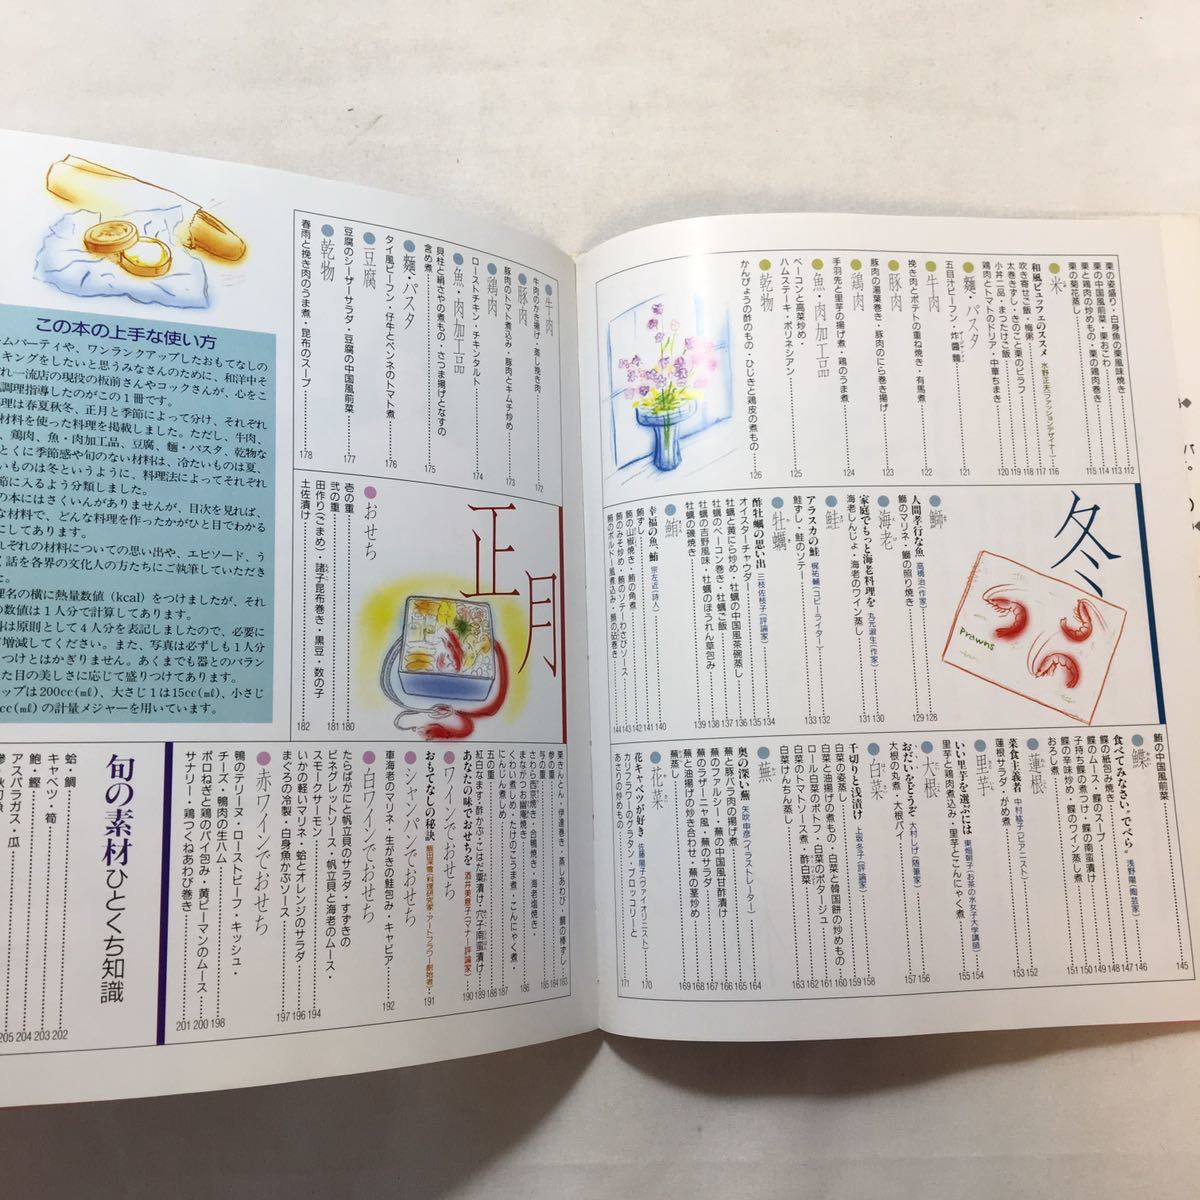 栗の姿盛り・白身魚の栗風味焼き 112
栗の中国風前菜・栗おこわ 113
栗と鶏肉の炒めもの・栗の鶏肉巻き 114
栗の菊花蒸し 115
米
和風ビュッフェのススメ 水野正夫(ファッションデザイナー) 116
吹き寄せご飯・梅粥 117
太巻きずし・きのこと栗のピラフ 118
小丼二品・まつたけご飯 119
鶏肉とトマトのドリア・中華ちまき 120
麺・パスタ
五目汁ビーフン・炸醤麺 121
牛肉
挽き肉とポテトの重ね焼き・有馬煮 122
豚肉
豚肉の湯葉巻き・豚肉のにら巻き揚げ 123
鶏肉
手羽先と里芋の揚げ煮・鶏のうま煮 124
魚・肉加工品
ベーコンと高菜炒め・
ハムステーキ・ポリネシアン 125
乾物
かんぴょうの酢のもの・ひじきと鶏皮の煮もの 126
冬
Prawns
鰤
人間孝行な魚 高橋治(作家) 128
鰤のマリネ・鰤の照り焼き 129
海老
家庭でもっと海老料理を 丸元淑生(作家) 130
海老しんじょ・海老のワイン蒸し 131
鮭
アラスカの鮭 梶祐輔(コピーライター) 132
鮭ずし・鮭のソテー 133
牡蠣
酢牡蠣の思い出 三枝佐枝子(評論家) 134
オイスターチャウダー 135
牡蠣と黄にら炒め・牡蠣の中国風茶碗蒸し 136
牡蠣のベーコン巻き・牡蠣ご飯 137
牡蠣の吉野風味・牡蠣のほうれん草包み 138
牡蠣の磯焼き 139
鮪
幸福の魚、鮪 宗左近(詩人) 140
鮪ずし 141
鮪の山椒焼き・鮪の角煮 142
鮪のみそ炒め・鮪のソテーわさびソース 143
鮪のボルドー風煮込み・鮪の砧巻き 144
鮪の中国風前菜 145
鰈
食べてみなさい、“でべら” 浅野陽(陶芸家) 146
鰈の紙包み焼き 147
鰈のムース・鰈のスープ 148
子持ち鰈の煮つけ・鰈の南蛮漬け 149
鰈の辛味炒め・鰈のワイン蒸し 150
おろし煮 151
蓮根
菜食主義者 中村紘子(ピアニスト) 152
蓮根サラダ・がめ煮 153
里芋
いい里芋を選ぶには 東畑朝子(お茶の水女子大学講師) 154
里芋と鶏肉煮込み・里芋とこんにゃく煮 155
大根
おだいをどうぞ 大村しげ(随筆家) 156
大根の丸煮・大根パイ 157
白菜
千切りと浅漬け 上坂冬子(評論家) 158
白菜の姿蒸し 159
白菜と油揚げの煮もの・白菜と韓国餅の炒めもの 160
ロール白菜のポトフ・白菜のポタージュ 161
白菜のトマトソース煮・酢白菜 162
白菜けんちん蒸し 163
蕪
奥の深い蕪 矢吹申彦(イラストレーター) 164
蕪と豚バラ肉の揚げ煮 165
蕪のファルシー・蕪の中国風甘酢漬け 166
蕪のラザーニャ風・蕪のサラダ 167
蕪と油揚げの炊き合わせ・蕪の茎炒め 168
蕪蒸し 169
花菜
花キャベツが好き 佐藤陽子(ヴァイオリニスト) 170
カリフラワのグラタン・ブロッコリーと
あさりの炒めもの 171
牛肉
牛肉のかき揚げ・蒸し挽き肉 172
豚肉
豚肉のトマト煮込み・豚肉とキムチ炒め 173
鶏肉
ローストチキン・チキンタルト 174
魚・肉加工品
貝柱と絹さやの煮もの・さつま揚げとなすの
含め煮 175
麺・パスタ
タイ風ビーフン・仔牛とペンネのトマト煮 176
豆腐
豆腐のシーザーサラダ・豆腐の中国風前菜 177
乾物
春雨と挽き肉のうま煮・昆布のスープ 178
正月
おせち
壱の重 180
弐の重 181
田作り(ごまめ)・諸子昆布巻き・黒豆・数の子
土佐漬け 182
栗きんとん・伊達巻き・蒸しあわび・鯛の棒ずし 183
参の重 184
与の重 185
さわら西京焼き・合鴨焼き・海老塩焼き・
まながつお幽庵焼き 186
くわい煮しめ・たけのこうま煮・こんにゃく煮・
にんじん煮しめ 187
五の重 188
紅白なます・酢かぶ・こはだ粟漬け・穴子南蛮漬け 189
あなたの味でおせちを 酒井美意子(マナー評論家) 190
ワインでおせち
おもてなしの秘訣 飯田深雪(料理研究家・アートフラワー創始者) 191
シャンパンでおせち
車海老のマリネ・生がきの鮭包み・キャビア 192
白ワインでおせち
たらばがにと帆立貝のサラダ・すずきの
ビネグレットソース・帆立貝と海老のムース・
スモークサーモン 194
いかの軽いマリネ・蛤とオレンジのサラダ 196
まぐろの冷製・白身魚かぶソース 197
赤ワインでおせち
鴨のテリーヌ・ローストビーフ・キッシュ・
チーズ・鴨肉の生ハム 198
ポロねぎと鶏のパイ包み・黄ピーマンのムース 200
サナリー・鶏つくねあわび巻き 201
旬の素材ひとくち知識
蛤・鯛 202
キャベツ・筍 203
鮑・鰹 204
アスパラガス・瓜 205
この本の上手な使い方
ームパーティや、ワンランクアップしたおもてなしの
キングをしたいと思うみなさんのために、和洋中そ
れ一流店の現役の板前さんやコックさんが、心をこ
調理指導したのがこの1冊です。
理は春夏秋冬、正月と季節によって分け、それぞれ
材料を使った料理を掲載しました。ただし、牛肉、
、鶏肉、魚・肉加工品、豆腐、麺・パスタ、乾物な
とくに季節感や旬のない材料は、冷たいものは夏、
いものは冬というように、料理法によってそれぞれ
節に入るよう分類しました。
の本にはさくいんがありませんが、目次を見れば、
な材料で、どんな料理を作ったかがひと目でわかる
にしてあります。
れぞれの材料についての思い出や、エピソード、う
く話を各界の文化人の方たちにご執筆していただき
た。
理名の横に熱量数値(kcal)をつけましたが、それ
の数値は1人分で計算してあります。
料は原則として4人分を表記しましたので、必要に
て増減してください。また、写真は必ずしも1人分
つけとはかぎりません。あくまでも器とのバラン
た目の美しさに応じて盛りつけてあります。
ップは200cc(㎖)、大さじ1は15cc(㎖)、小さじ
cc(㎖)の計量メジャーを用いています。